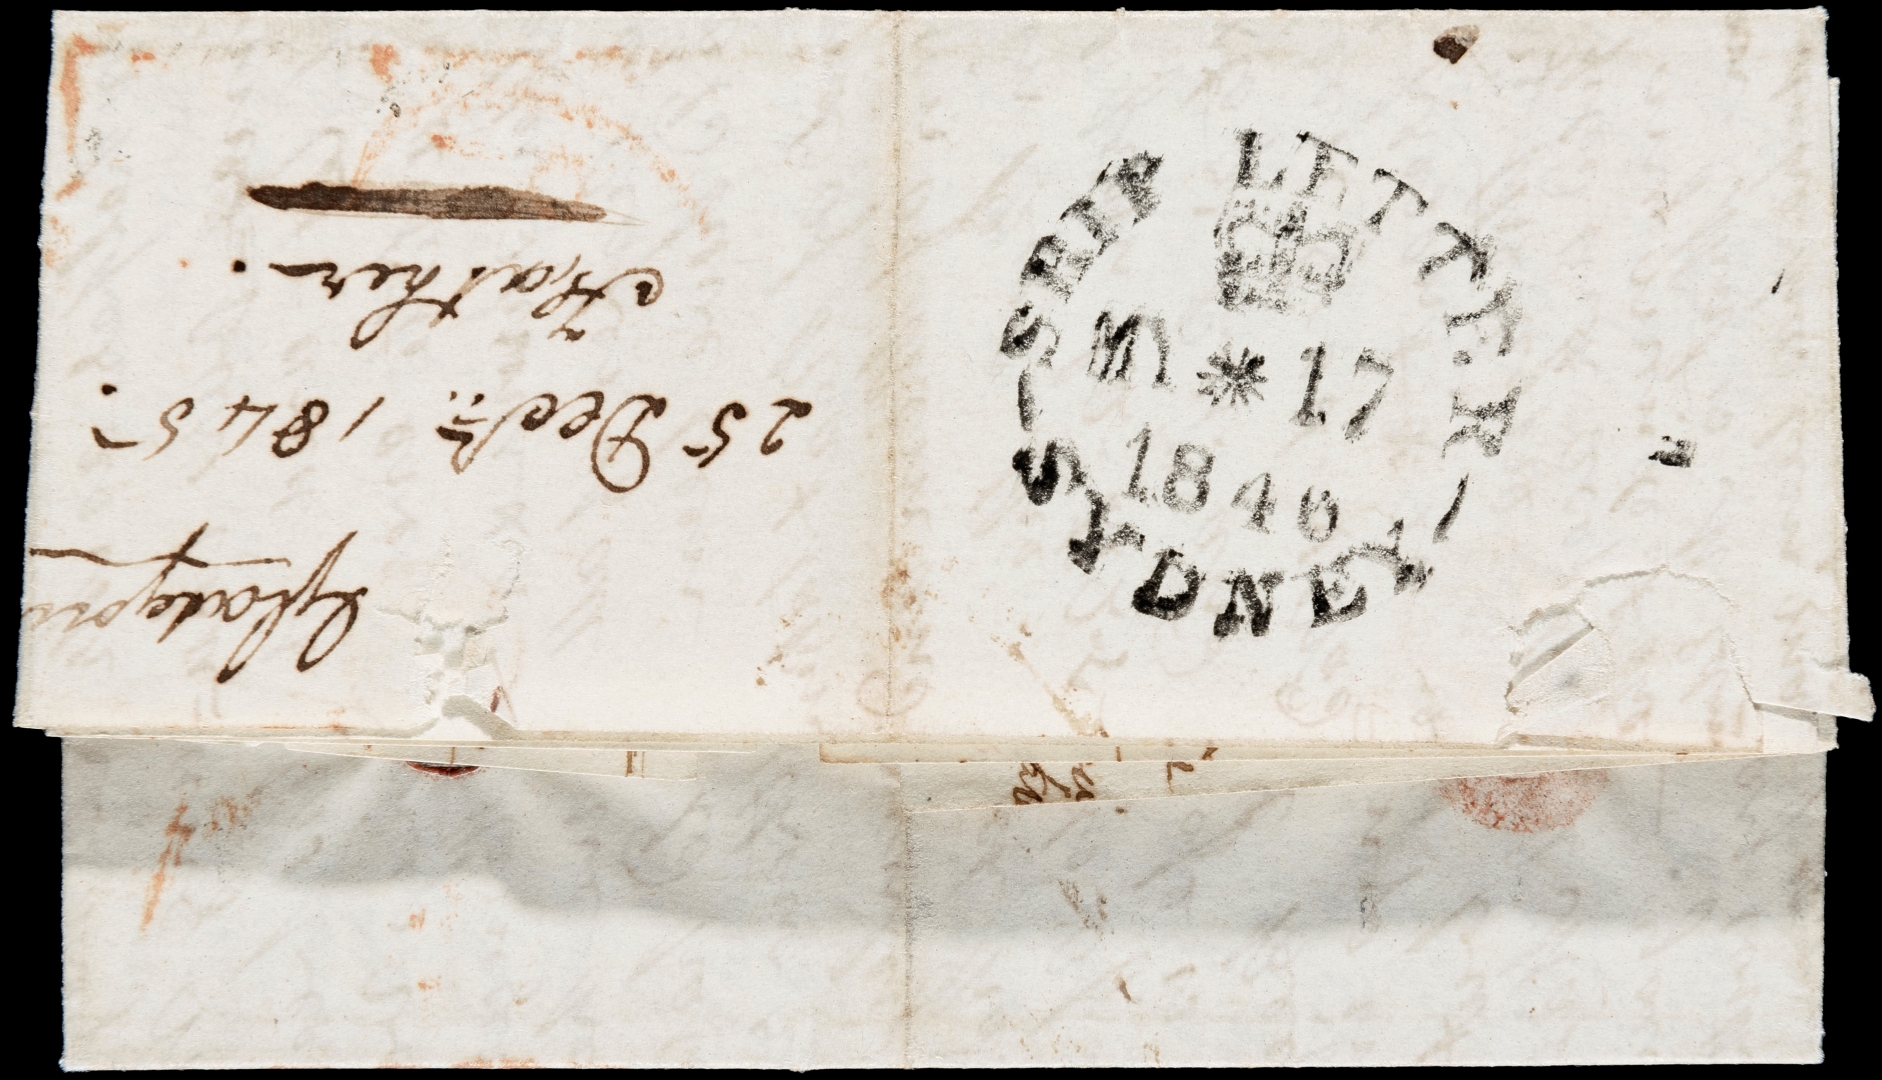 SHIP LETTER
MY * 17
1846
SYDNEY
25 Decr. 1845.
Father.